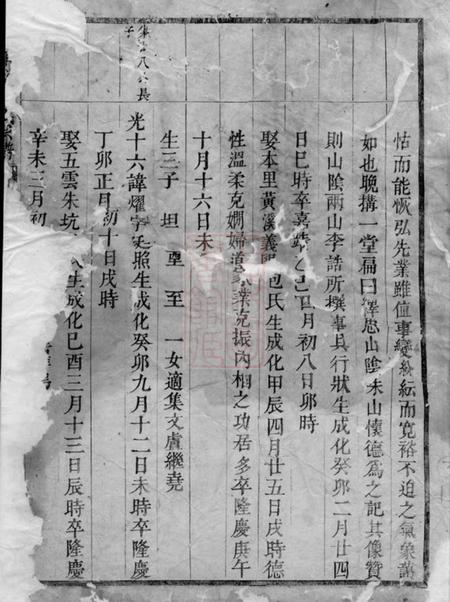 怙而能恢弘先業雖值事變紛紜而寬裕不迫之氣象藹
如也晚搆一堂扁曰繹思山陰朱山懷德為之記其像贊
則山陰兩山李誥所撰事具行狀生成化癸卯二月廿四
日巳時卒嘉靖乙巳 月初八日卯時
娶本里黃溪義 包氏生成化甲辰四月廿五日戌時德
性溫柔克嫻婦道家業克振內相之功居多卒隆慶庚午
十月十六日未
生三子 坦 垔 至 一女適集文虞繼堯
光十六諱燿字 照生成化癸卯九月十二日未時卒隆慶
丁卯正月初十日戌時
娶五雲朱坑 氏生成化己酉三月十三日辰時卒隆慶
辛未三月初
八 長
子